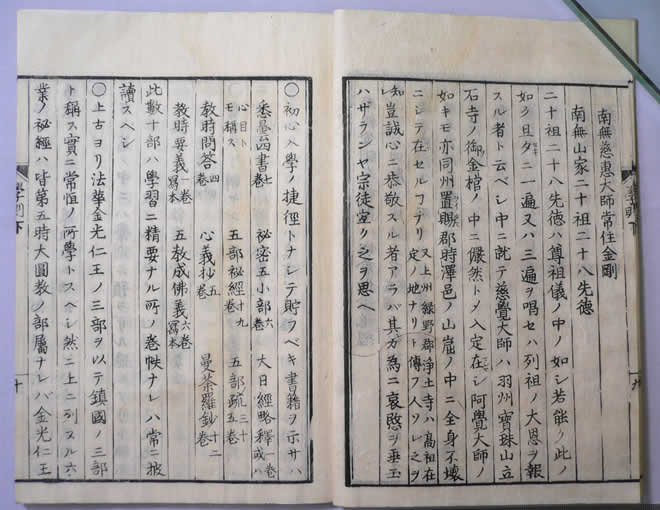 南無慈惠大師常住金剛
南無山家二十祖二十八先德
二十祖二十八先德ハ尊祖儀ノ中ノ如シ若能ク此ノ
如ク旦夕ニ一遍又ハ三遍ヲ唱セハ列祖ノ大恩ヲ報
スル者ト云ベシ中ニ就テ慈覺大師ハ羽州寶珠山立
石寺ノ御金棺ノ中ニ儼然トメ入定在シ阿覺大師ノ
如キモ亦同州置賜郡時澤邑ノ山窟ノ中ニ全身不壞
ニシテ在セルコテリ
又上州綠野郡淨土寺ハ高祖在
定ノ地ナリト傳フ人ソレ之ヲ
知豈誠心ニ恭敬スル者アラバ其カ為ニ哀愍ヲ垂玉
ハザランヤ宗徒室ク之ヲ思ヘ
學則下
九
〇初心入學ノ捷徑トナシテ貯フベキ書籍ヲ示サハ
悉曇四書七卷
祕密五小部六卷
大日經略釋一卷或ハ
心目ト
モ稱ス
五部祕經十九卷
五部疏三十五卷
教時問答四卷
心義抄五卷
曼荼羅鈔十二卷
教時要義一卷寫本
五教成佛義六卷寫本
此數十部ハ學習ニ精要ナル所ノ卷帙ナレハ常ニ披
讀スヘシ
〇上古ヨリ法華金光仁王ノ三部ヲ以テ鎮國ノ三部
ト稱ス實ニ常恒ノ所學トスヘシ然ニ上ニ列スル六
業ノ祕經ハ皆第五時大圓教ノ部屬ナレバ金光仁王
學則下
十